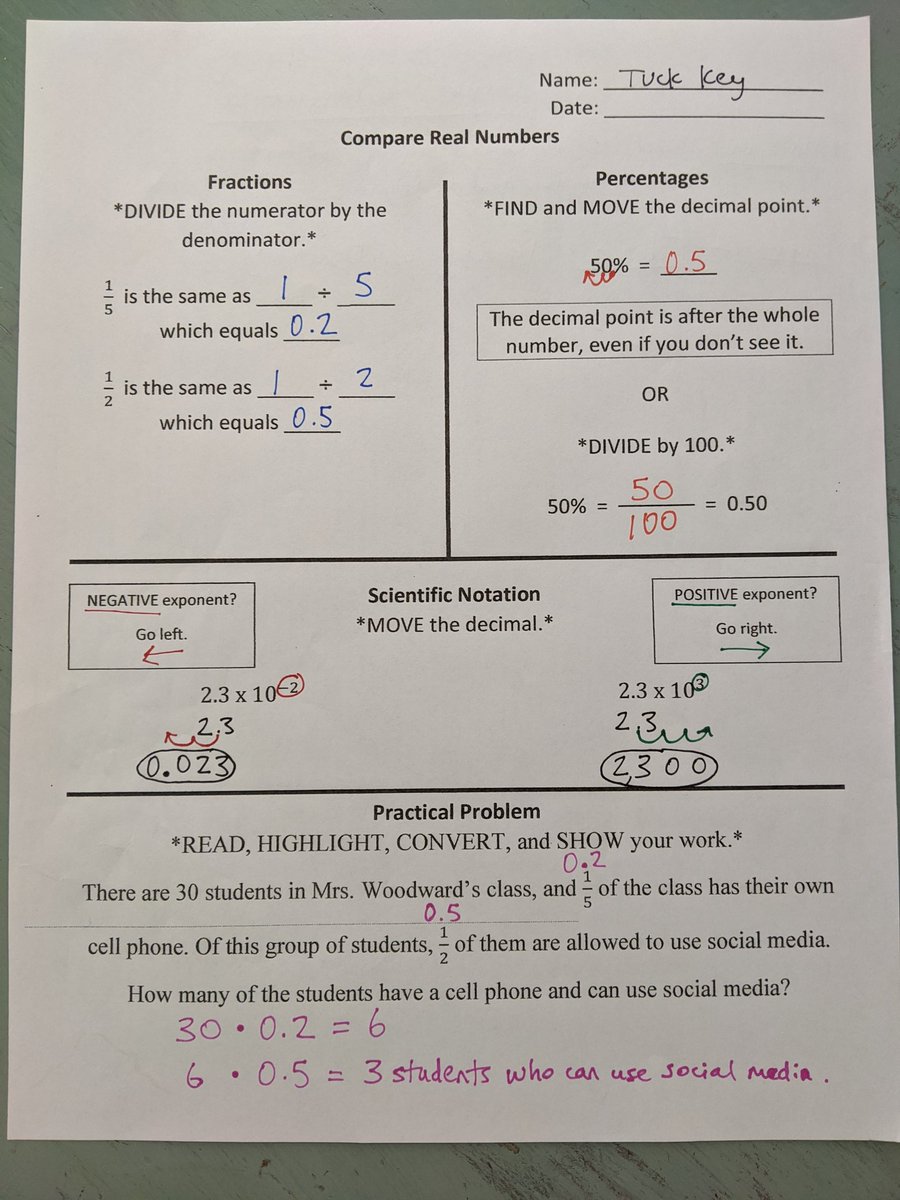 Name: Tuck Key
Date:
Compare Real Numbers
Fractions
*DIVIDE the numerator by the
denominator.*
1/5 is the same as 1 ÷ 5
which equals 0.2
1/2 is the same as 1 ÷ 2
which equals 0.5
Percentages
*FIND and MOVE the decimal point.*
50% = 0.5
The decimal point is after the whole
number, even if you don't see it.
OR
*DIVIDE by 100.*
50% = 50/100 = 0.50
NEGATIVE exponent?
Go left.
Scientific Notation
*MOVE the decimal.*
POSITIVE exponent?
Go right.
2.3 x 10⁻²
2.3
0.023
2.3 x 10³
2.3
2,300
Practical Problem
*READ, HIGHLIGHT, CONVERT, and SHOW your work.*
0.2
There are 30 students in Mrs. Woodward's class, and 1/5 of the class has their own
0.5
cell phone. Of this group of students, 1/2 of them are allowed to use social media.
How many of the students have a cell phone and can use social media?
30 • 0.2 = 6
6 • 0.5 = 3 students who can use social media.